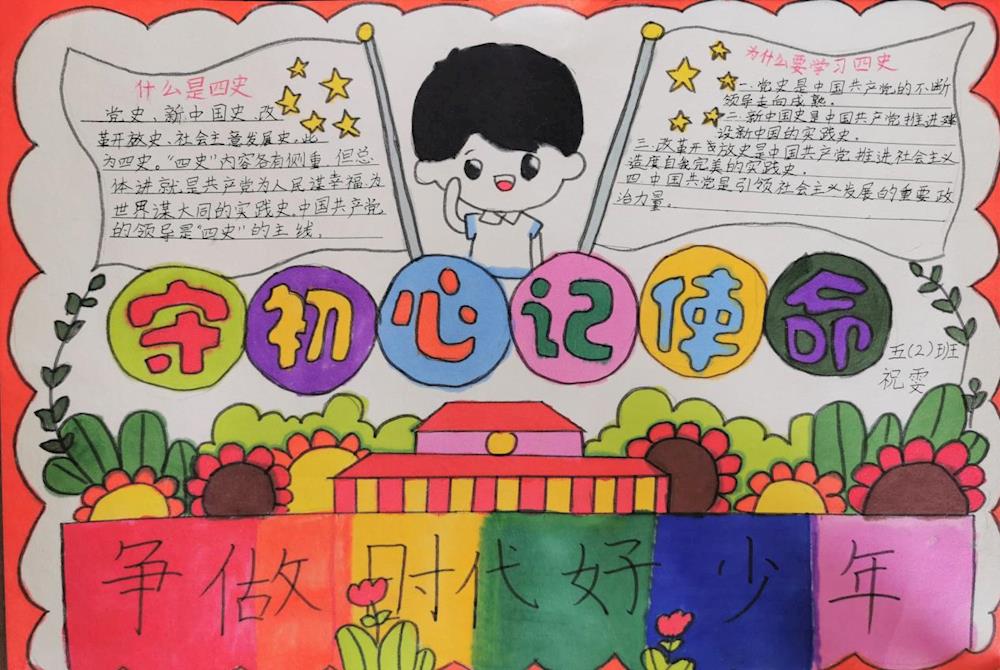 什么是四史
党史、新中国史、改
革开放史、社会主意发展史,此
为四史。"四史"内容各有侧重,但总
体讲就是共产党为人民谋幸福,为
世界谋大同的实践史,中国共产党
的领导是"四史"的主线.
为什么要学习四史
一.党史是中国共产党的不断
领导走向成熟.
二.新中国史是中国共产党推进建
设新中国的实践史.
三.改革开放史是中国共产党推进社会主义
造度自我完美的实践史.
四.中国党是引领社会主义发展的重要政
治力量.
守初心记使命
五(2)班
祝雯
争做时代好少年